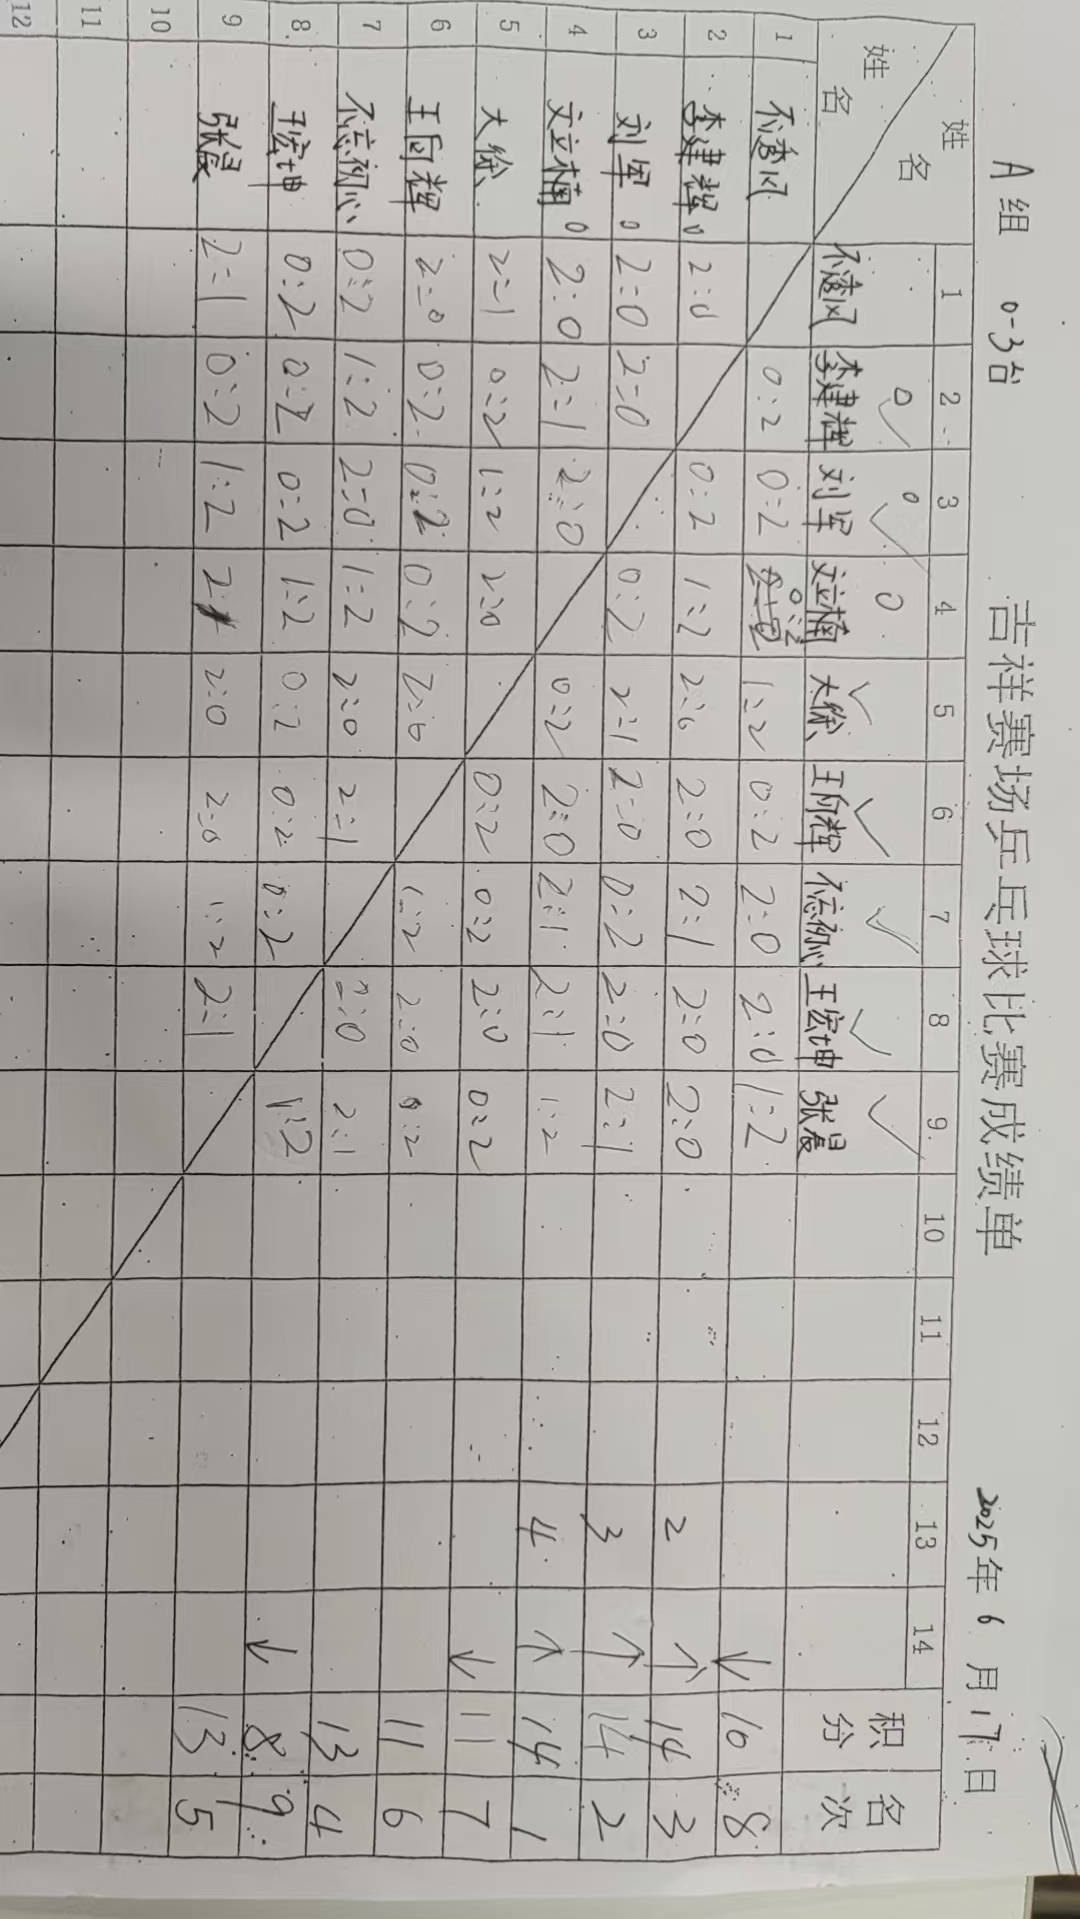 吉祥赛场乒乓球比赛成绩单
A组 0-3台 2025年6月17日
姓名 姓名 1 2 3 4 5 6 7 8 9 10 11 12 13 14 积分 名次
不透风 李建辉 0 刘军 0 文立楠 0 大徐 王向辉 不忘初心 王宏坤 张晨
1 不透风 0:2 0:2 0:2 1:2 0:2 2:0 2:0 1:2 ↓ 10 8
2 李建辉 0 2:0 0:2 1:2 2:0 2:0 2:1 2:0 2:0 2 ↑ 14 3
3 刘军 0 2:0 2:0 0:2 2:1 2:0 0:2 2:0 2:1 3 ↑ 14 2
4 文立楠 0 2:0 2:1 2:0 0:2 2:0 2:1 2:1 1:2 4 ↑ 14 1
5 大徐 2:1 0:2 1:2 2:0 0:2 0:2 2:0 0:2 ↓ 11 7
6 王向辉 2:0 0:2 0:2 0:2 2:0 1:2 2:0 0:2 11 6
7 不忘初心 0:2 1:2 2:0 1:2 2:0 2:1 2:0 2:1 13 4
8 王宏坤 0:2 0:2 0:2 1:2 0:2 0:2 0:2 1:2 ↓ 8 9
9 张晨 2:1 0:2 1:2 2:1 2:0 2:0 1:2 2:1 13 5
10
11
12